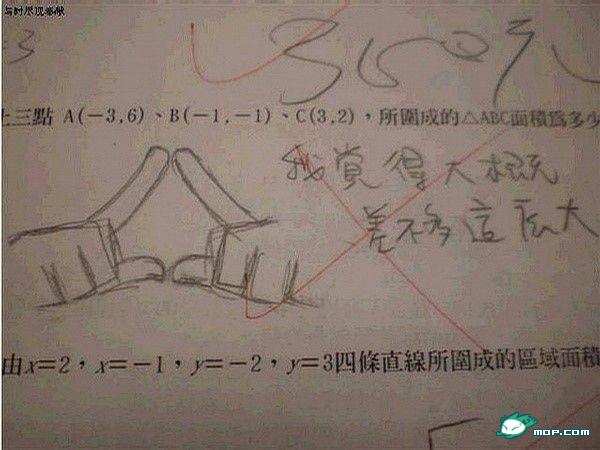 -3
360元
上三點 A(-3,6)、B(-1,-1)、C(3,2)，所圍成的△ABC面積為多少
我覺得大概
差不多這麼大
由x=2，x=-1，y=-2，y=3四條直線所圍成的區域面積
mop.com